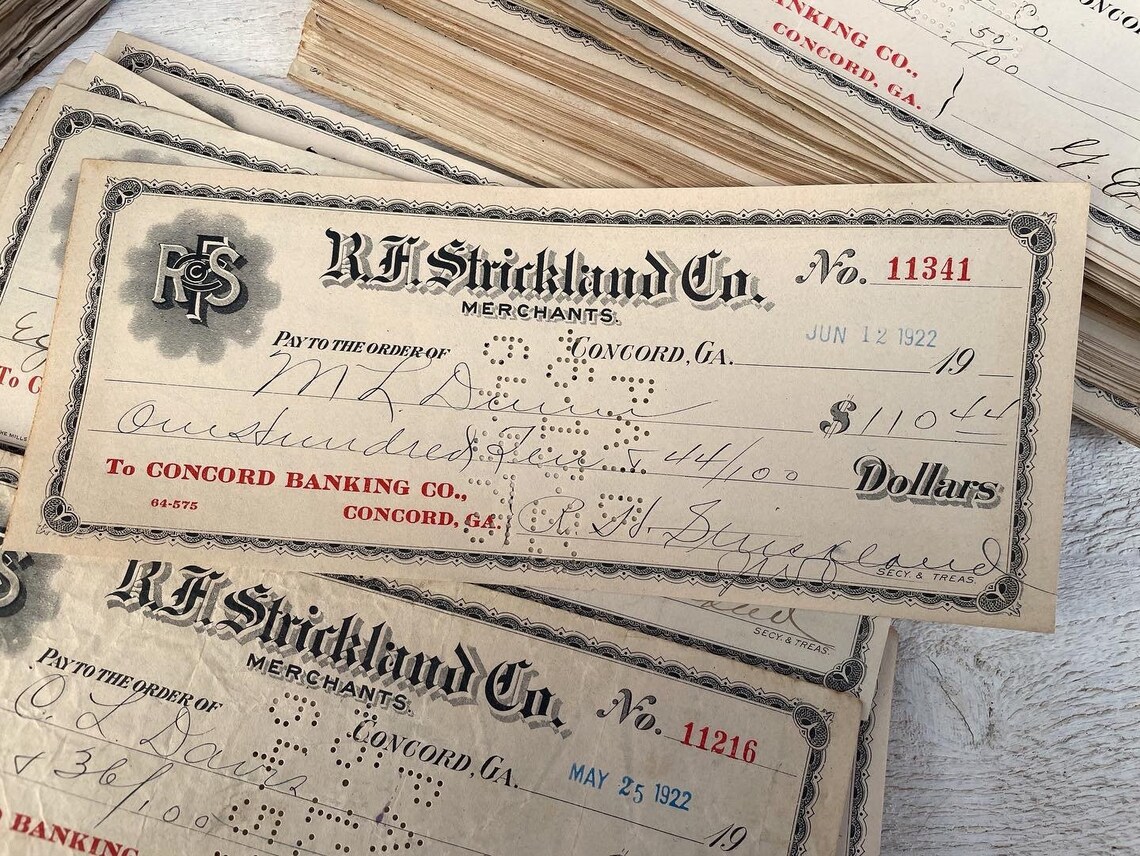 BANKING CO.,
CONCORD, GA.
50/100
R.F. Strickland Co.
MERCHANTS.
No. 11341
JUN 12 1922
PAY TO THE ORDER OF
CONCORD, GA.
19
M L Dunn
$110 44
One Hundred Ten & 44/100
Dollars
To CONCORD BANKING CO.,
64-575
CONCORD, GA.
R. H. Strickland
SECY. & TREAS.
To C
SECY. & TREAS.
R.F. Strickland Co.
MERCHANTS.
No. 11216
PAY TO THE ORDER OF
CONCORD, GA.
MAY 25 1922
19
C. L. Davis
& 36/100
BANKING